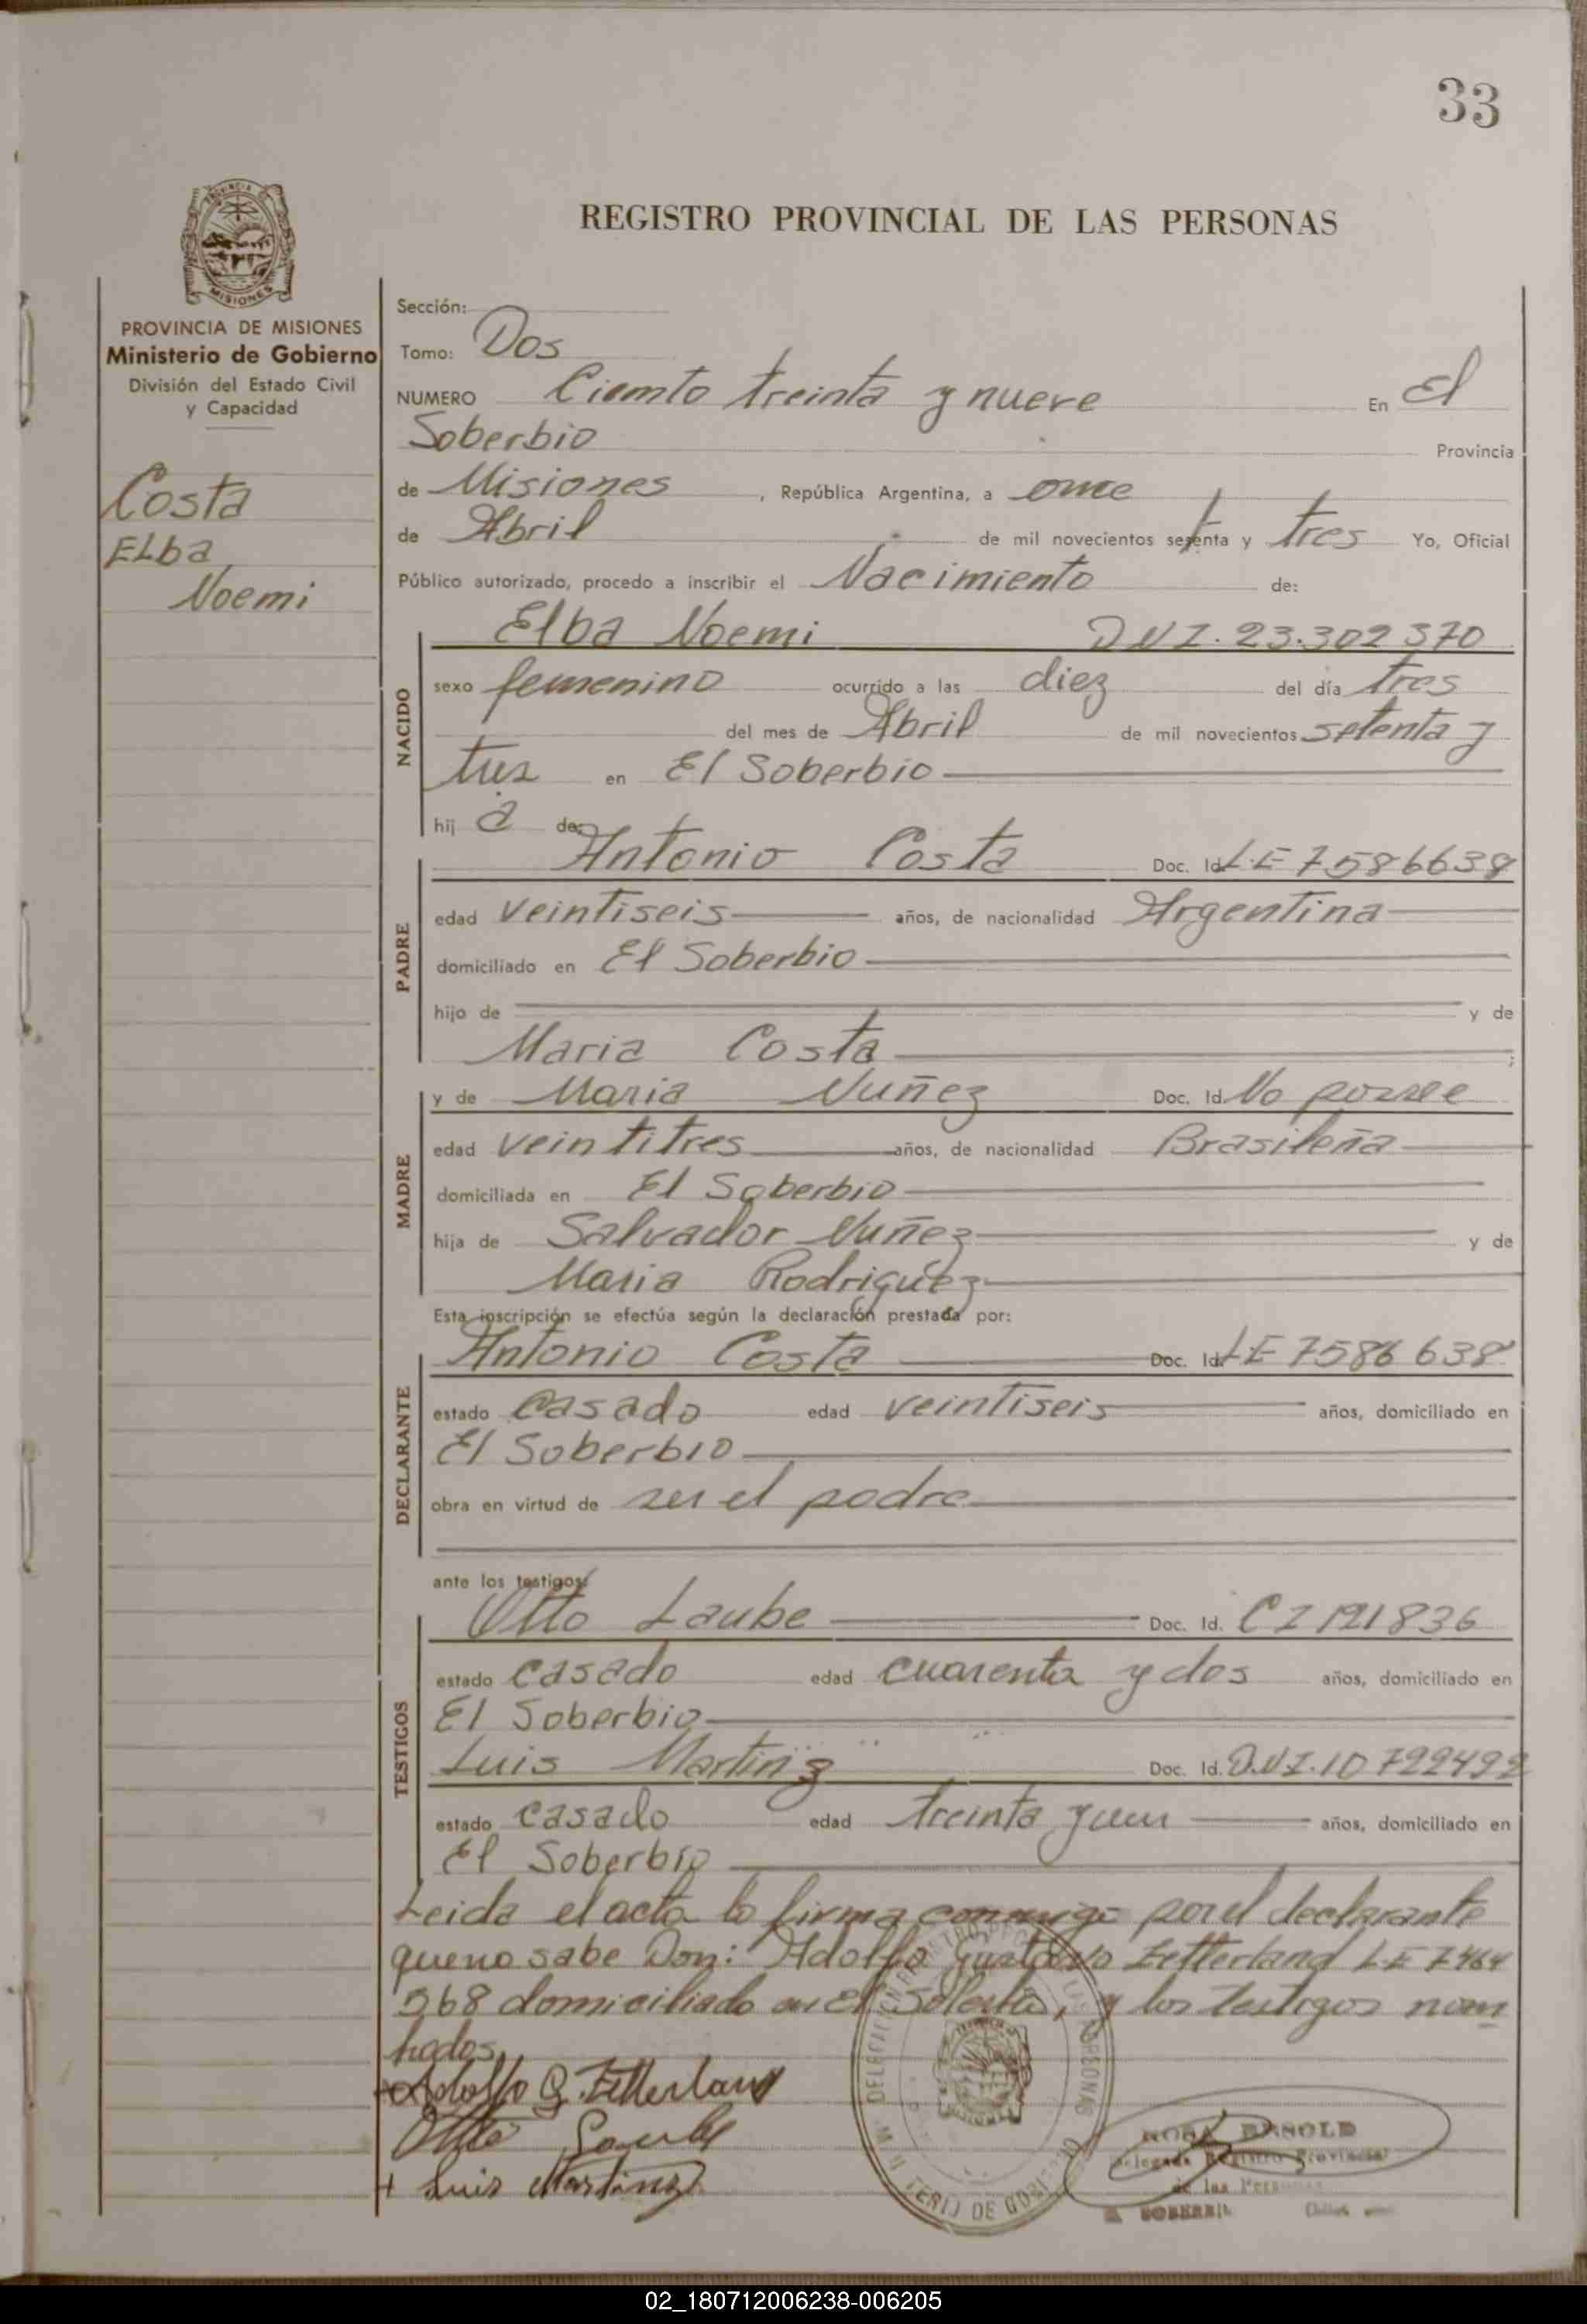 33
REGISTRO PROVINCIAL DE LAS PERSONAS
PROVINCIA DE MISIONES
Ministerio de Gobierno
División del Estado Civil
y Capacidad
Costa
Elba
Noemi
Sección:
Tomo: Dos
NUMERO Ciento treinta y nueve En El
Soberbio Provincia
de Misiones, República Argentina, a once
de Abril de mil novecientos setenta y tres Yo, Oficial
Público autorizado, procedo a inscribir el Nacimiento de:
NACIDO
Elba Noemi D.N.I. 23.302370
sexo femenino ocurrido a las diez del día tres
del mes de Abril de mil novecientos setenta y
tres en El Soberbio
hij a de:
PADRE
Antonio Costa Doc. Id. L.E 7586638
edad veintiseis años, de nacionalidad Argentina
domiciliado en El Soberbio
hijo de y de
Maria Costa ;
MADRE
y de Maria Nuñez Doc. Id. No posee
edad veintitres años, de nacionalidad Brasileña
domiciliada en El Soberbio
hija de Salvador Nuñez y de
Maria Rodriguez
Esta inscripción se efectúa según la declaración prestada por:
DECLARANTE
Antonio Costa Doc. Id. LE 7586638
estado casado edad veintiseis años, domiciliado en
El Soberbio
obra en virtud de ser el padre
ante los testigos:
TESTIGOS
Otto Laube Doc. Id. CI 121836
estado casado edad cuarenta y dos años, domiciliado en
El Soberbio
Luis Martinz Doc. Id. D.N.I. 10722492
estado casado edad treinta y un años, domiciliado en
El Soberbio
Leida el acta la firma conmigo por el declarante
que no sabe Don: Adolfo Gustavo Zetterland LE 7464
568 domiciliado en El Soberbio, y los testigos nom
brados.
Adolfo G. Zetterland
Otto Laube
Luis Martinz
DE LAS PERSONAS
MINISTERIO DE GOBIERNO
MISIONES
Delegada Registro Provincial
de las Personas
EL SOBERBIO
02_180712006238-006205